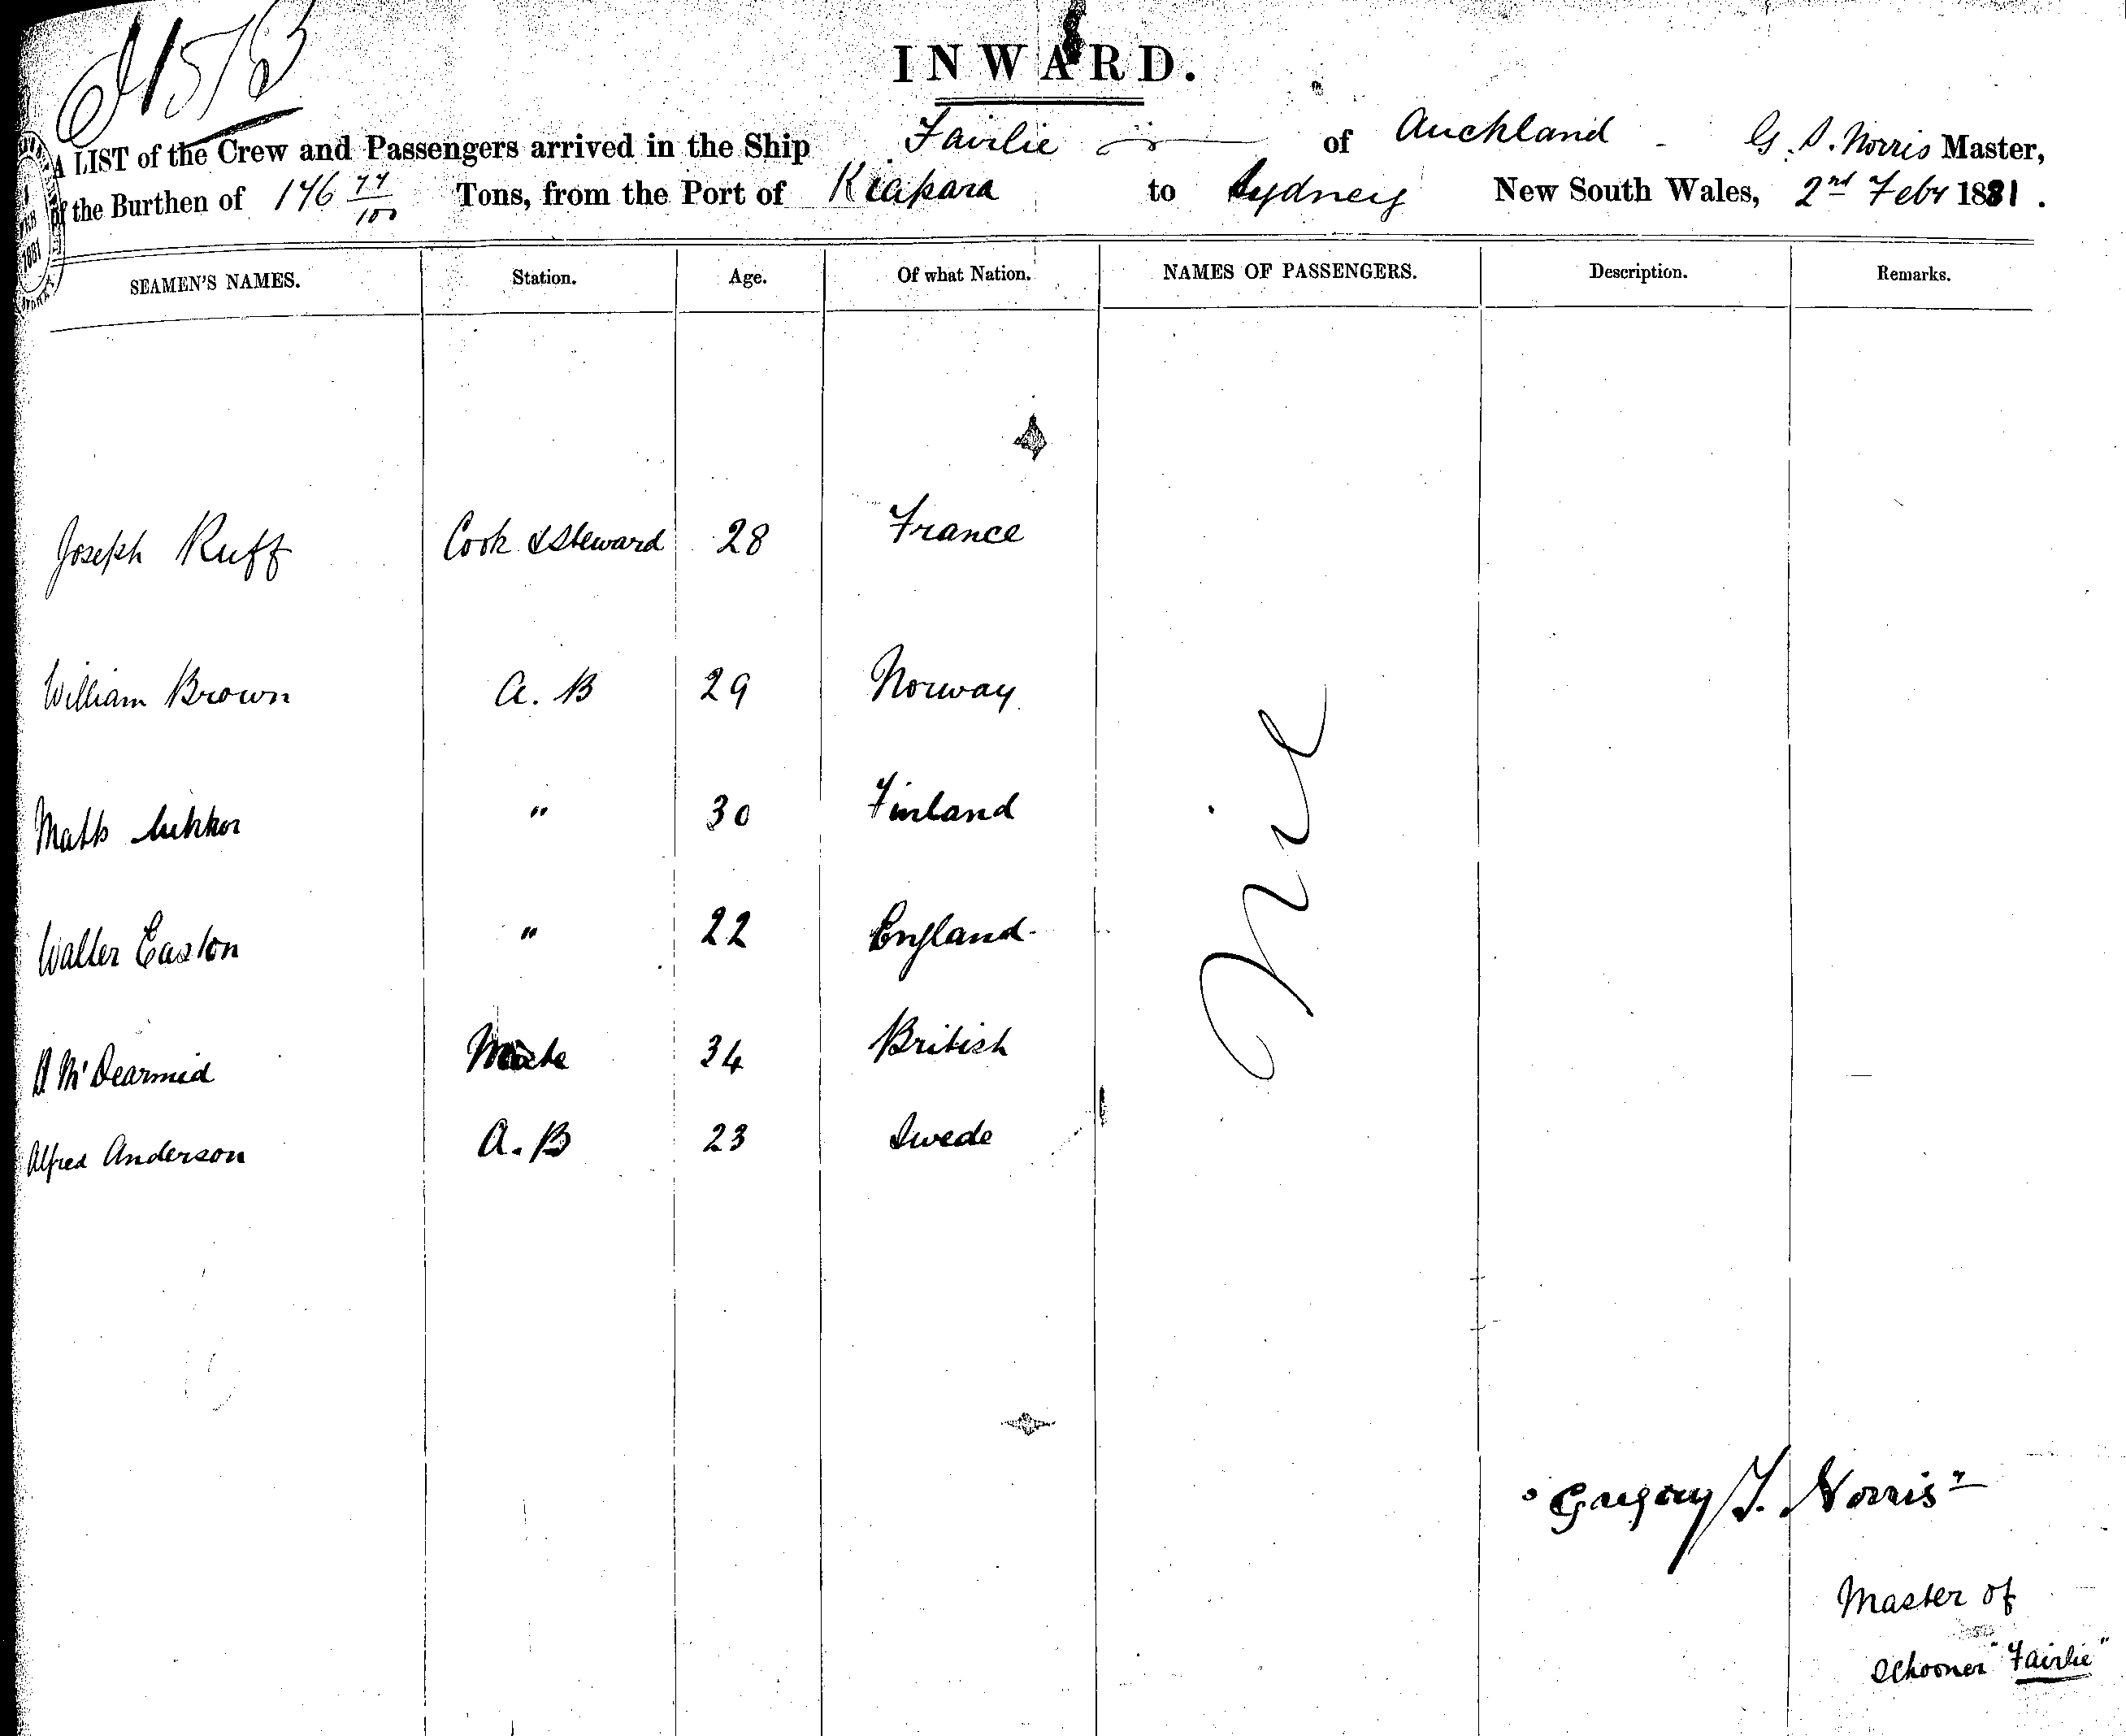 INWARD.
A LIST of the Crew and Passengers arrived in the Ship Fairlie of Auckland - G. S. Norris Master,
of the Burthen of 146 77/100 Tons, from the Port of Kiapara to Sydney New South Wales, 2nd Feby 1881.
SEAMEN'S NAMES. Station. Age. Of what Nation. NAMES OF PASSENGERS. Description. Remarks.
Joseph Ruff Cook & Steward 28 France
William Brown A. B 29 Norway
Matts " 30 Finland
Walter Easton " 22 England
Nil
D McDearmid Mate 34 British
Alfred Anderson A. B 23 Swede
Gregory T. Norris
Master of
Schooner "Fairlie"